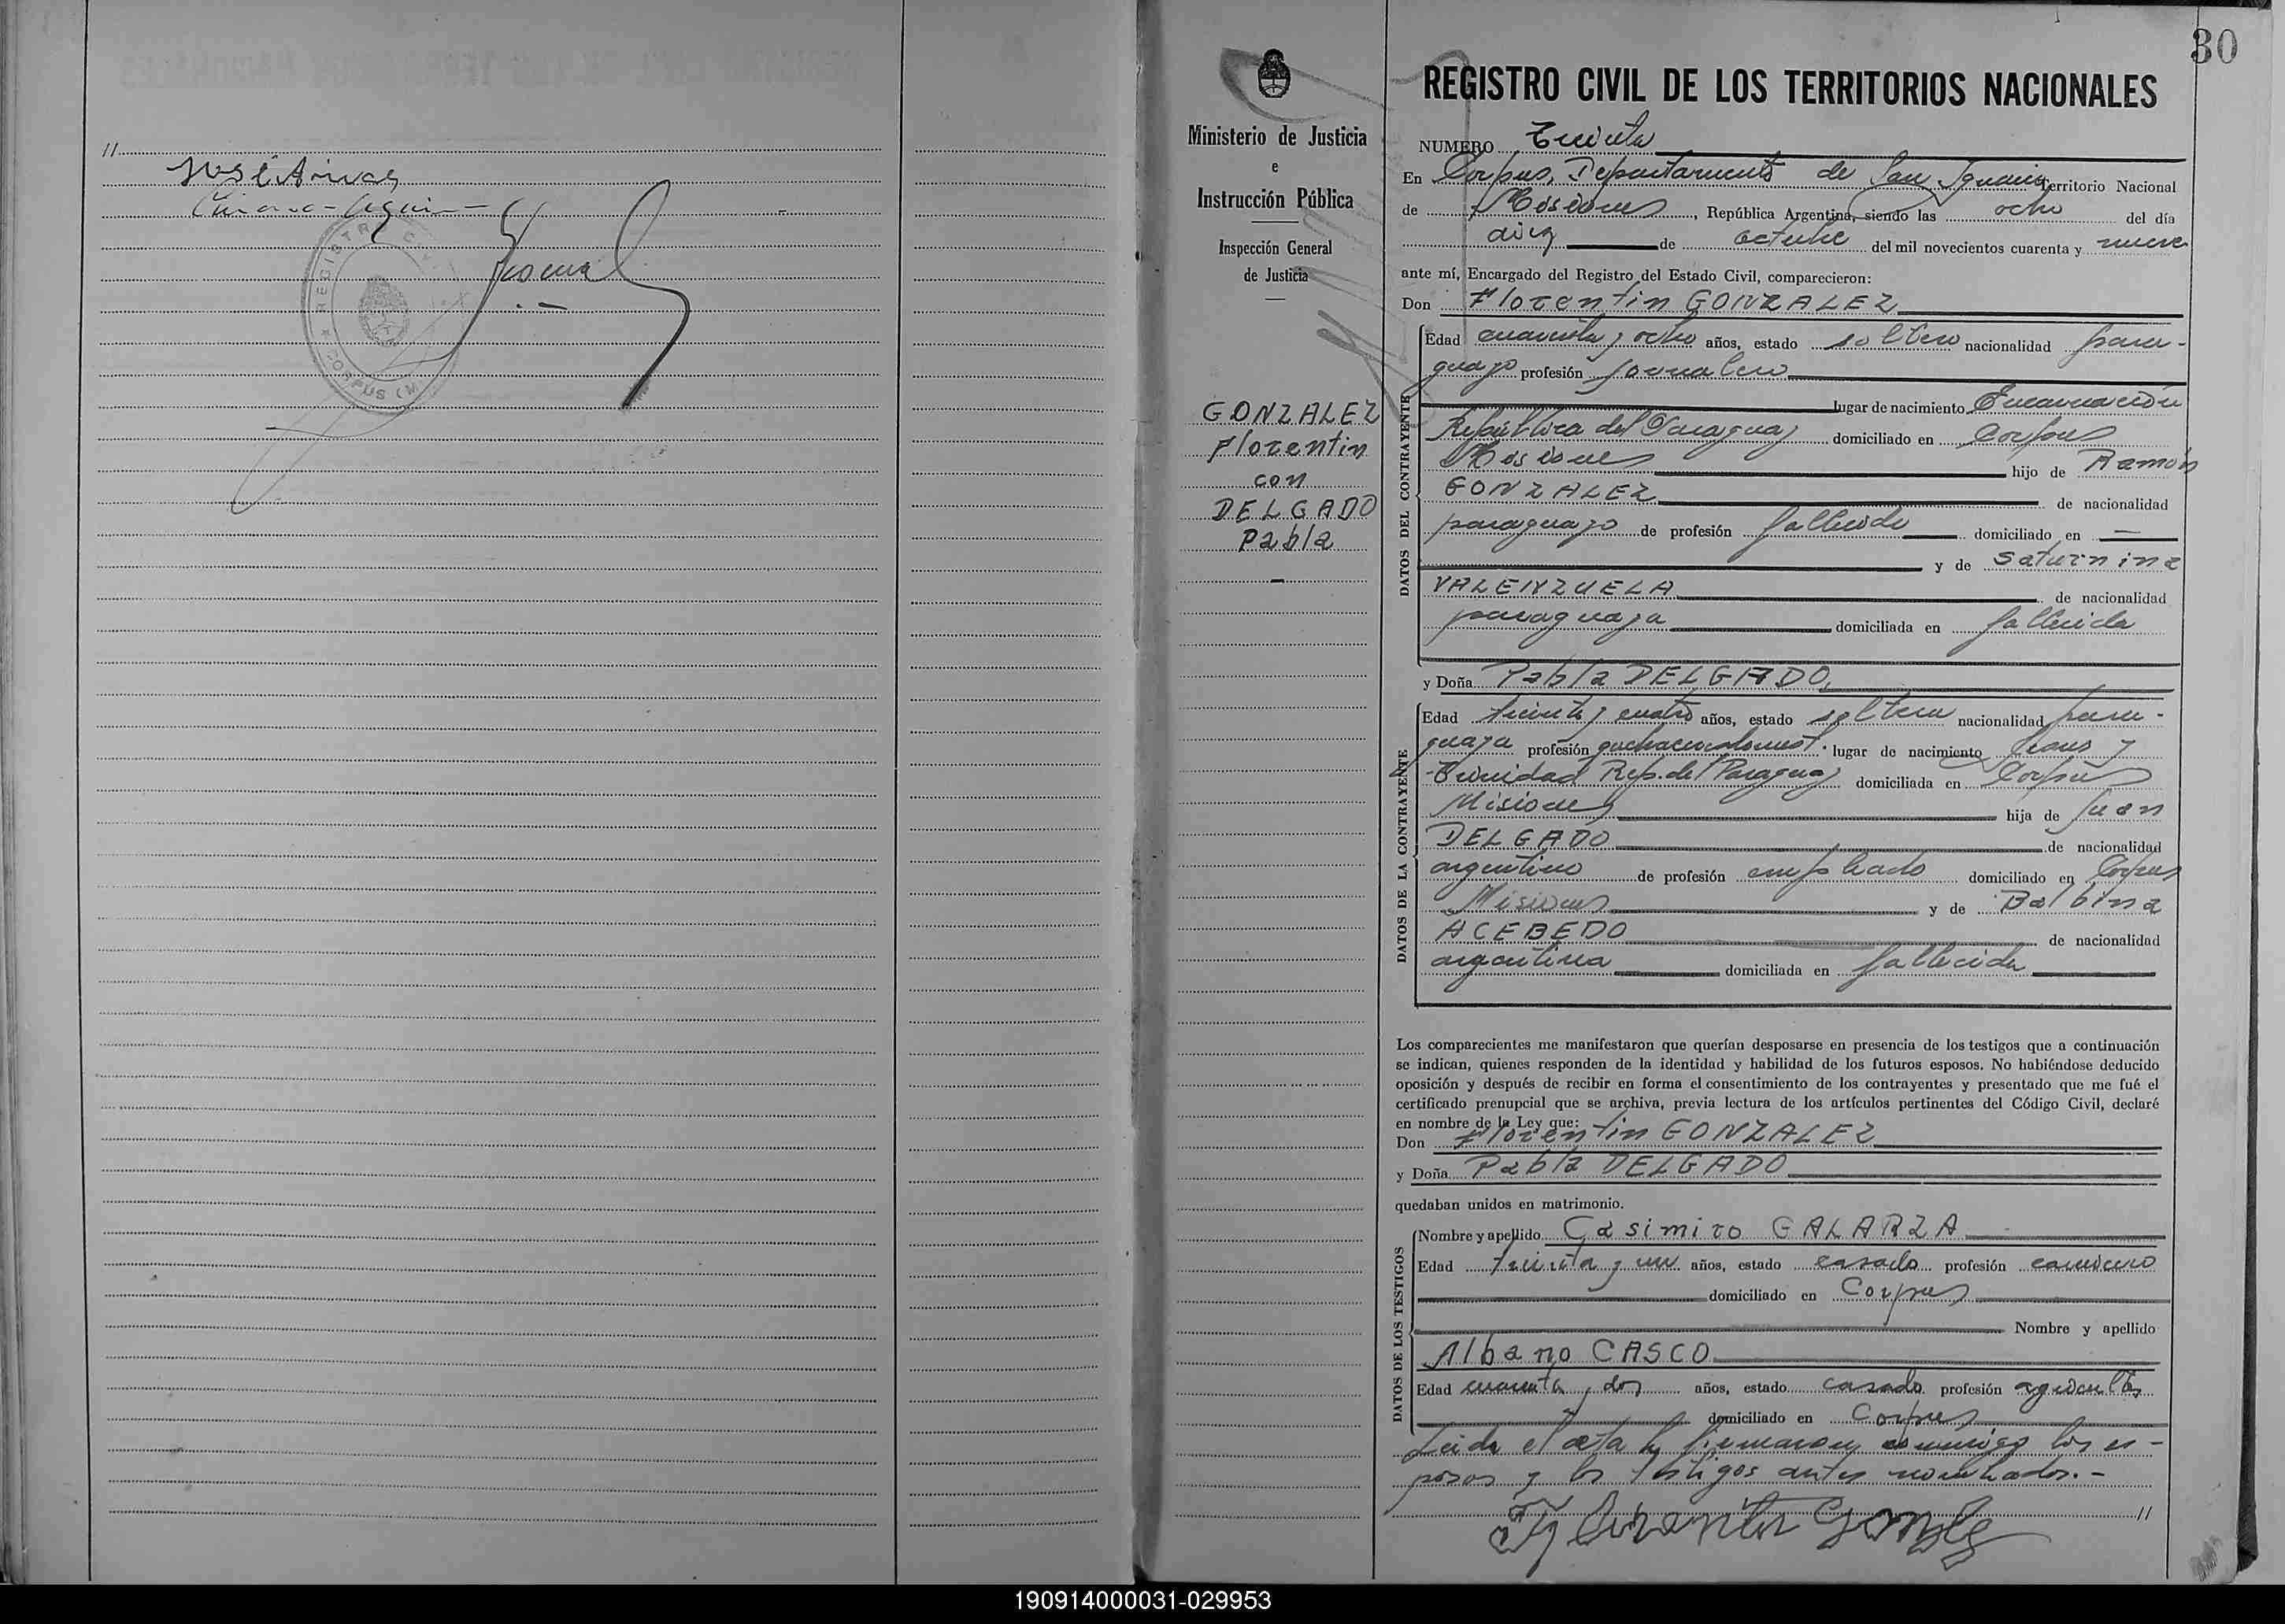 //
José Rivas
REGISTRO CIVIL
CORPUS (M
30
Ministerio de Justicia
e
Instrucción Pública
Inspección General
de Justicia
GONZALEZ
Florentin
con
DELGADO
Pabla
REGISTRO CIVIL DE LOS TERRITORIOS NACIONALES
NUMERO Treinta
En Corpus, Departamento de San Ignacio Territorio Nacional
de Misiones, República Argentina, siendo las ocho del día
diez de octubre del mil novecientos cuarenta y nueve
ante mí, Encargado del Registro del Estado Civil, comparecieron:
Don Florentin GONZALEZ
DATOS DEL CONTRAYENTE
Edad cuarenta y ocho años, estado soltero nacionalidad para-
guayo profesión jornalero
lugar de nacimiento Encarnación
República del Paraguay domiciliado en Corpus
Misiones hijo de Ramón
GONZALEZ de nacionalidad
paraguayo de profesión fallecido domiciliado en —
y de Saturnina
VALENZUELA de nacionalidad
paraguaya domiciliada en fallecida
y Doña Pabla DELGADO
DATOS DE LA CONTRAYENTE
Edad treinta y cuatro años, estado soltera nacionalidad para-
guaya profesión quehaceresdomest. lugar de nacimiento Jesus y
Trinidad Rep. del Paraguay domiciliada en Corpus
Misiones hija de Juan
DELGADO de nacionalidad
argentino de profesión empleado domiciliado en Corpus
Misiones y de Balbina
ACEBEDO de nacionalidad
argentina domiciliada en fallecida
Los comparecientes me manifestaron que querían desposarse en presencia de los testigos que a continuación
se indican, quienes responden de la identidad y habilidad de los futuros esposos. No habiéndose deducido
oposición y después de recibir en forma el consentimiento de los contrayentes y presentado que me fué el
certificado prenupcial que se archiva, previa lectura de los artículos pertinentes del Código Civil, declaré
en nombre de la Ley que:
Don Florentin GONZALEZ
y Doña Pabla DELGADO
quedaban unidos en matrimonio.
DATOS DE LOS TESTIGOS
Nombre y apellido Casimiro GALARZA
Edad treinta y un años, estado casado profesión carnicero
domiciliado en Corpus
Nombre y apellido
Albano CASCO
Edad cuarenta y dos años, estado casado profesión agricultor
domiciliado en Corpus
Leida el acta la firmaron conmigo los es-
posos y los testigos antes nombrados.-
//
Florentin Gonzalez
190914000031-029953